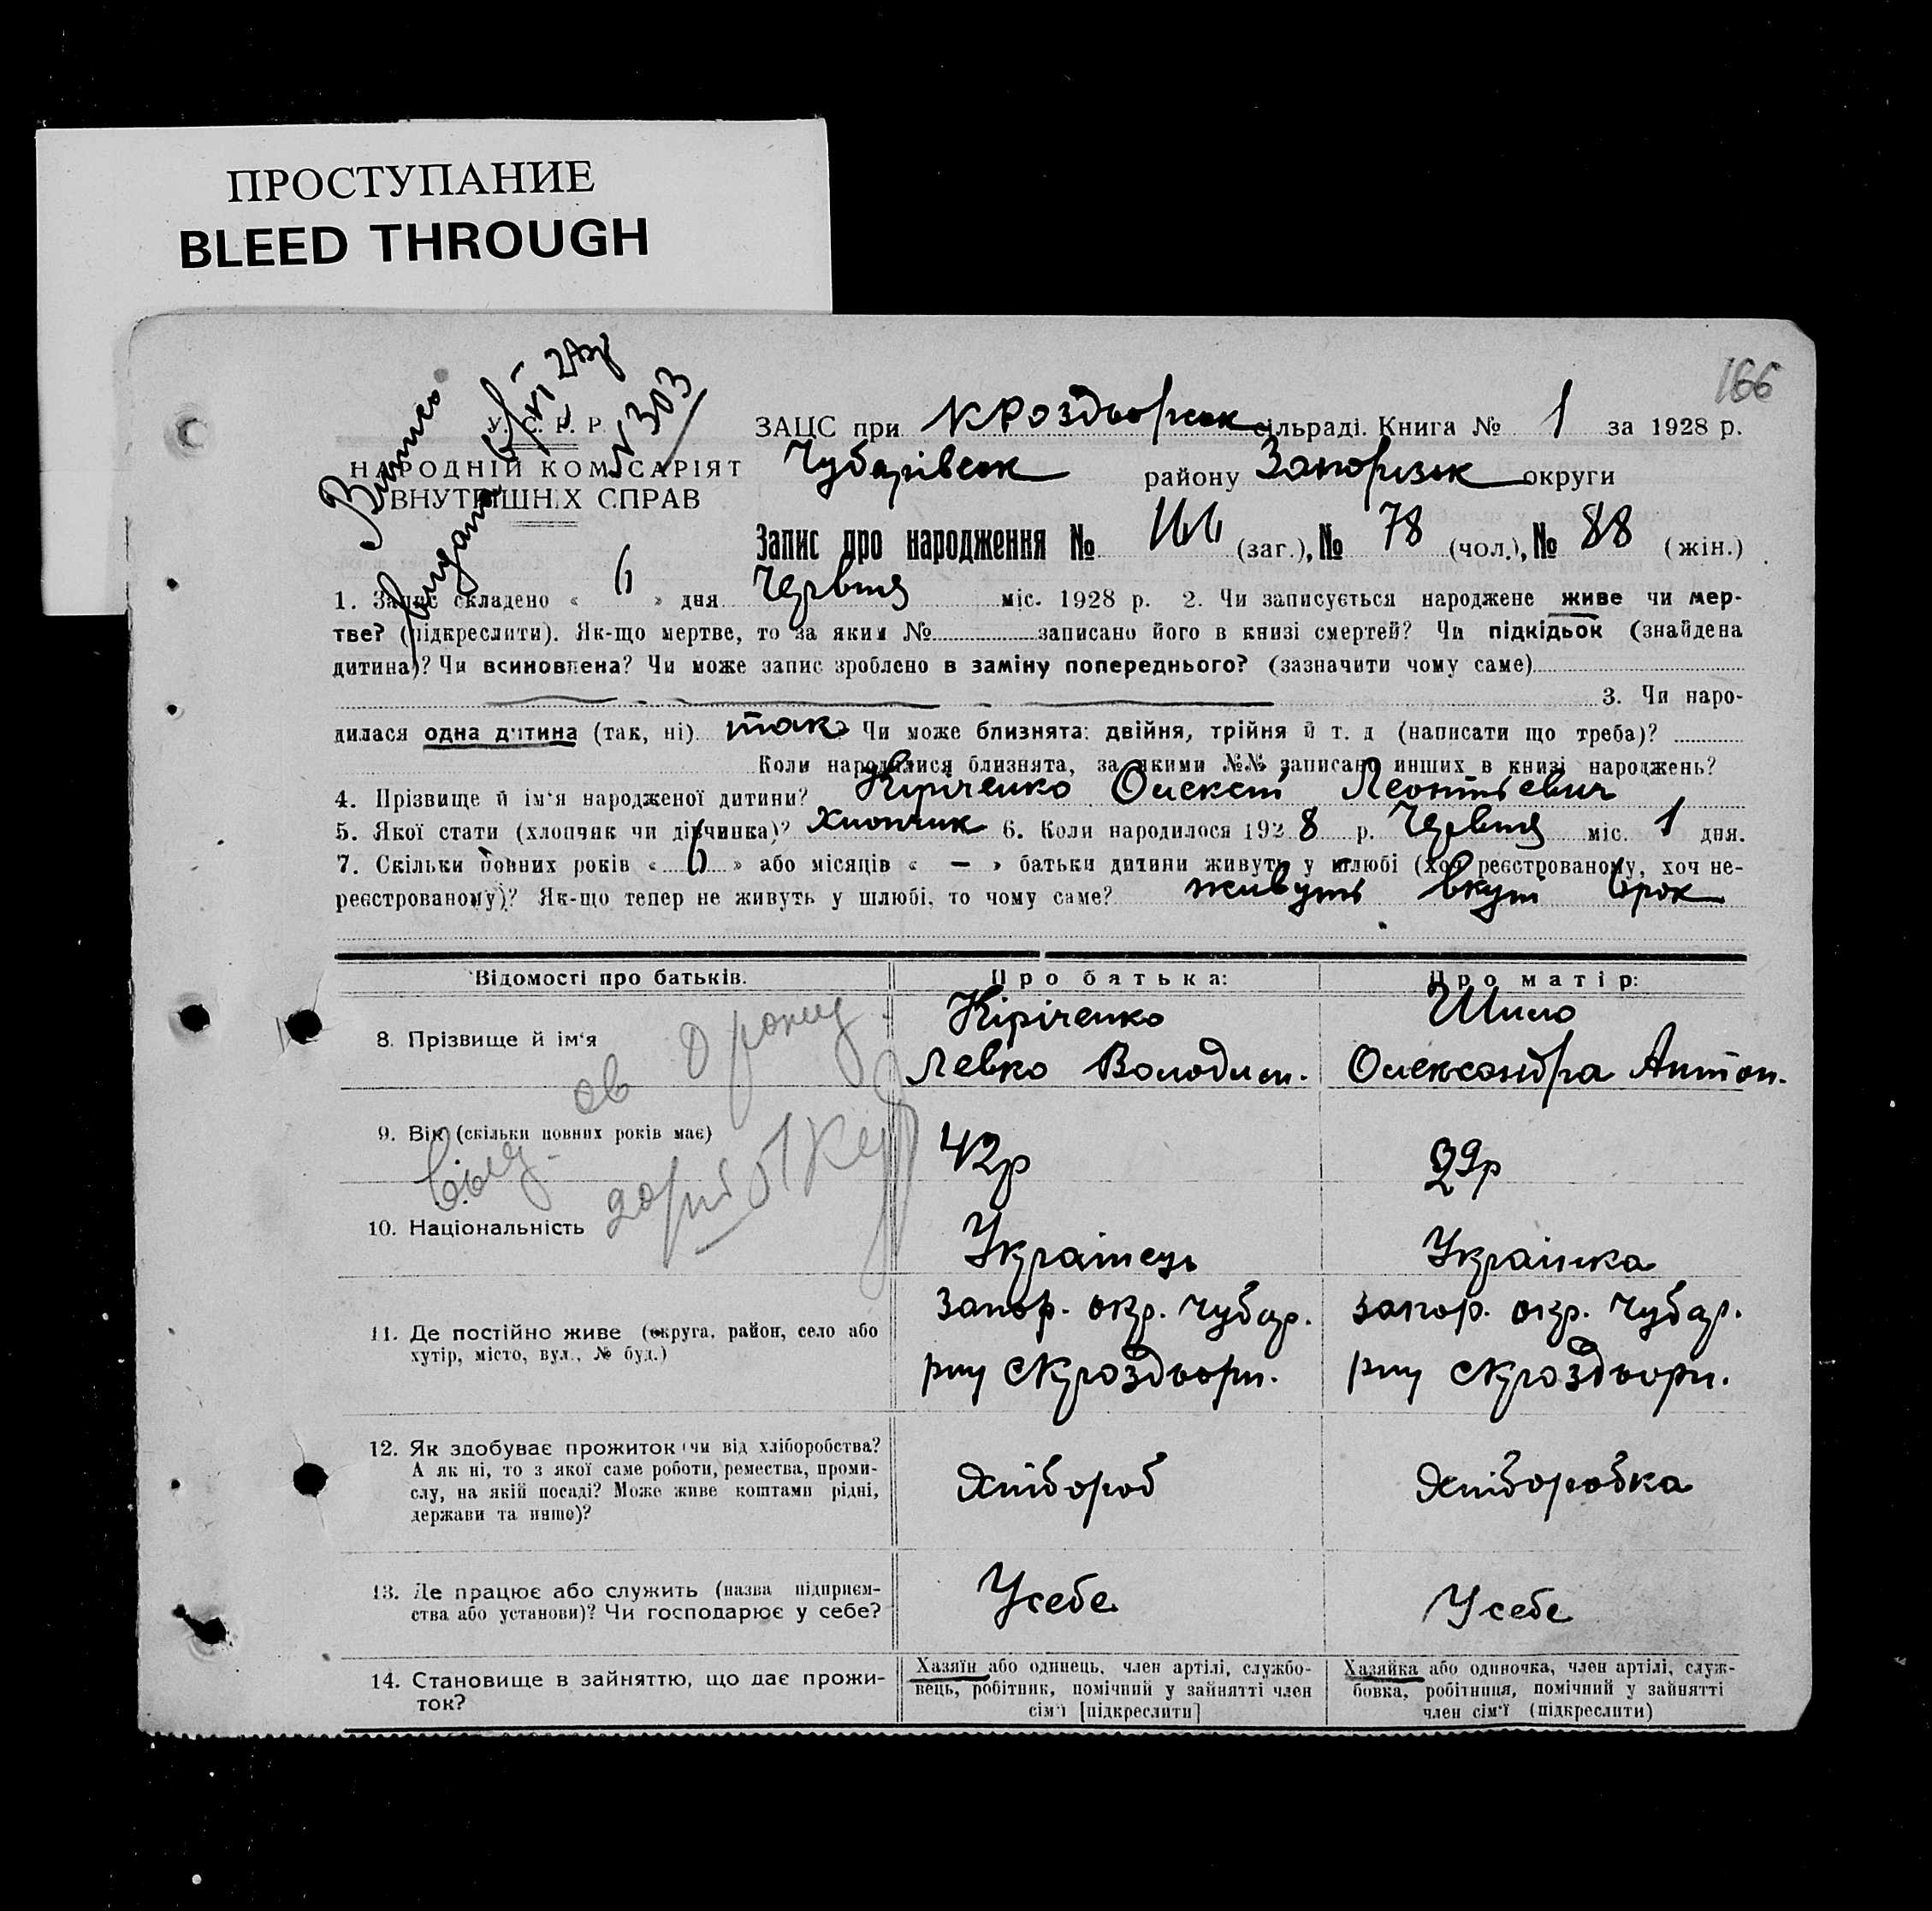 ПРОСТУПАНИЕ
BLEED THROUGH
166
У. С. Р. Р.
НАРОДНІЙ КОМІСАРІЯТ
ВНУТРІШНІХ СПРАВ
№ 303
ЗАЦС при К Роздорськ сільраді. Книга № 1 за 1928 р.
Чубарівськ району Запорізьк округи
Запис про народження № 166 (заг.), № 78 (чол.), № 88 (жін.)
1. Запис складено « 6 » дня Червня міс. 1928 р. 2. Чи записується народжене живе чи мер-
тве? (підкреслити). Як-що мертве, то за яким № записано його в книзі смертей? Чи підкідьок (знайдена
дитина)? Чи всиновлена? Чи може запис зроблено в заміну попереднього? (зазначити чому саме)
3. Чи наро-
дилася одна дитина (так, ні) так Чи може близнята: двійня, трійня й т. д (написати що треба)?
Коли народилися близнята, за якими №№ записано инших в книзі народжень?
4. Прізвище й ім'я народженої дитини? Кіріченко Олексій Леонтьевич
5. Якої стати (хлопчик чи дівчинка)? Хлопчик 6. Коли народилося 1928 р. Червня міс. 1 дня.
7. Скільки повних років « 6 » або місяців « — » батьки дитини живуть у шлюбі (хоч реєстрованому, хоч не-
реєстрованому)? Як-що тепер не живуть у шлюбі, то чому саме? живуть вкупі 6 рок
Відомості про батьків. Про батька: Про матір:
8. Прізвище й ім'я
Кіріченко
Левко Володим.
Шило
Олександра Антон.
9. Вік (скільки повних років має) 42р 29р
10. Національність Українець Українка
11. Де постійно живе (округа, район, село або
хутір, місто, вул., № буд.)
Запор. окр. Чубар.
рну
Запор. окр. Чубар.
рну
12. Як здобуває прожиток чи від хліборобства?
А як ні, то з якої саме роботи, ремества, проми-
слу, на якій посаді? Може живе коштами рідні,
держави та инше)?
Хлібороб
Хліборобка
13. Де працює або служить (назва підприєм-
ства або установи)? Чи господарює у себе?
Усебе
Усебе
14. Становище в зайняттю, що дає прожи-
ток?
Хазяїн або одинець, член артілі, службо-
вець, робітник, помічний у зайнятті член
сім'ї [підкреслити]
Хазяйка або одиночка, член артілі, служ-
бовка, робітниця, помічний у зайнятті
член сім'ї (підкреслити)